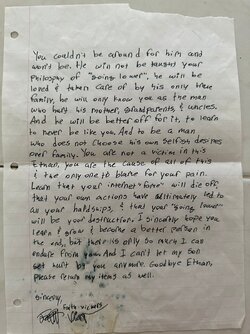 You couldn't be around for him and
won't be. He will not be taught your
Philosophy of "going lower", he will be
loved & taken care of by his only true
family, he will only know you as the man
who hurt his mother, grandparents, & uncles.
And he will be better off for it, to learn
to never be like you. And to be a man
who does not choose his own selfish desires
over family. You are not a victim in this
Ethan, you are the cause of all of this
& the only one to blame for your pain.
Learn that your internet "fame" will die off,
that your own actions have ultimately led to
all your hardships, & that your "going lower"
will be your destruction. I sincerely hope you
learn & grow & become a better person in
the end, but there is only so much I can
endure from you. And I can't let my son
get hurt by you anymore. Goodbye Ethan,
please return my items as well.
Sincerely,